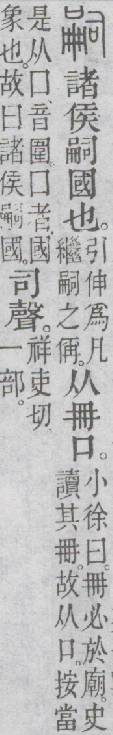 嗣諸侯嗣國也。
引伸爲凡
繼嗣之偁。
从冊口。
小徐曰。冊必於廟。史
讀其冊。故从口。按當
是从囗、音圍。囗者、國
象也。故曰諸侯嗣國。
司聲。
祥吏切。
一部。